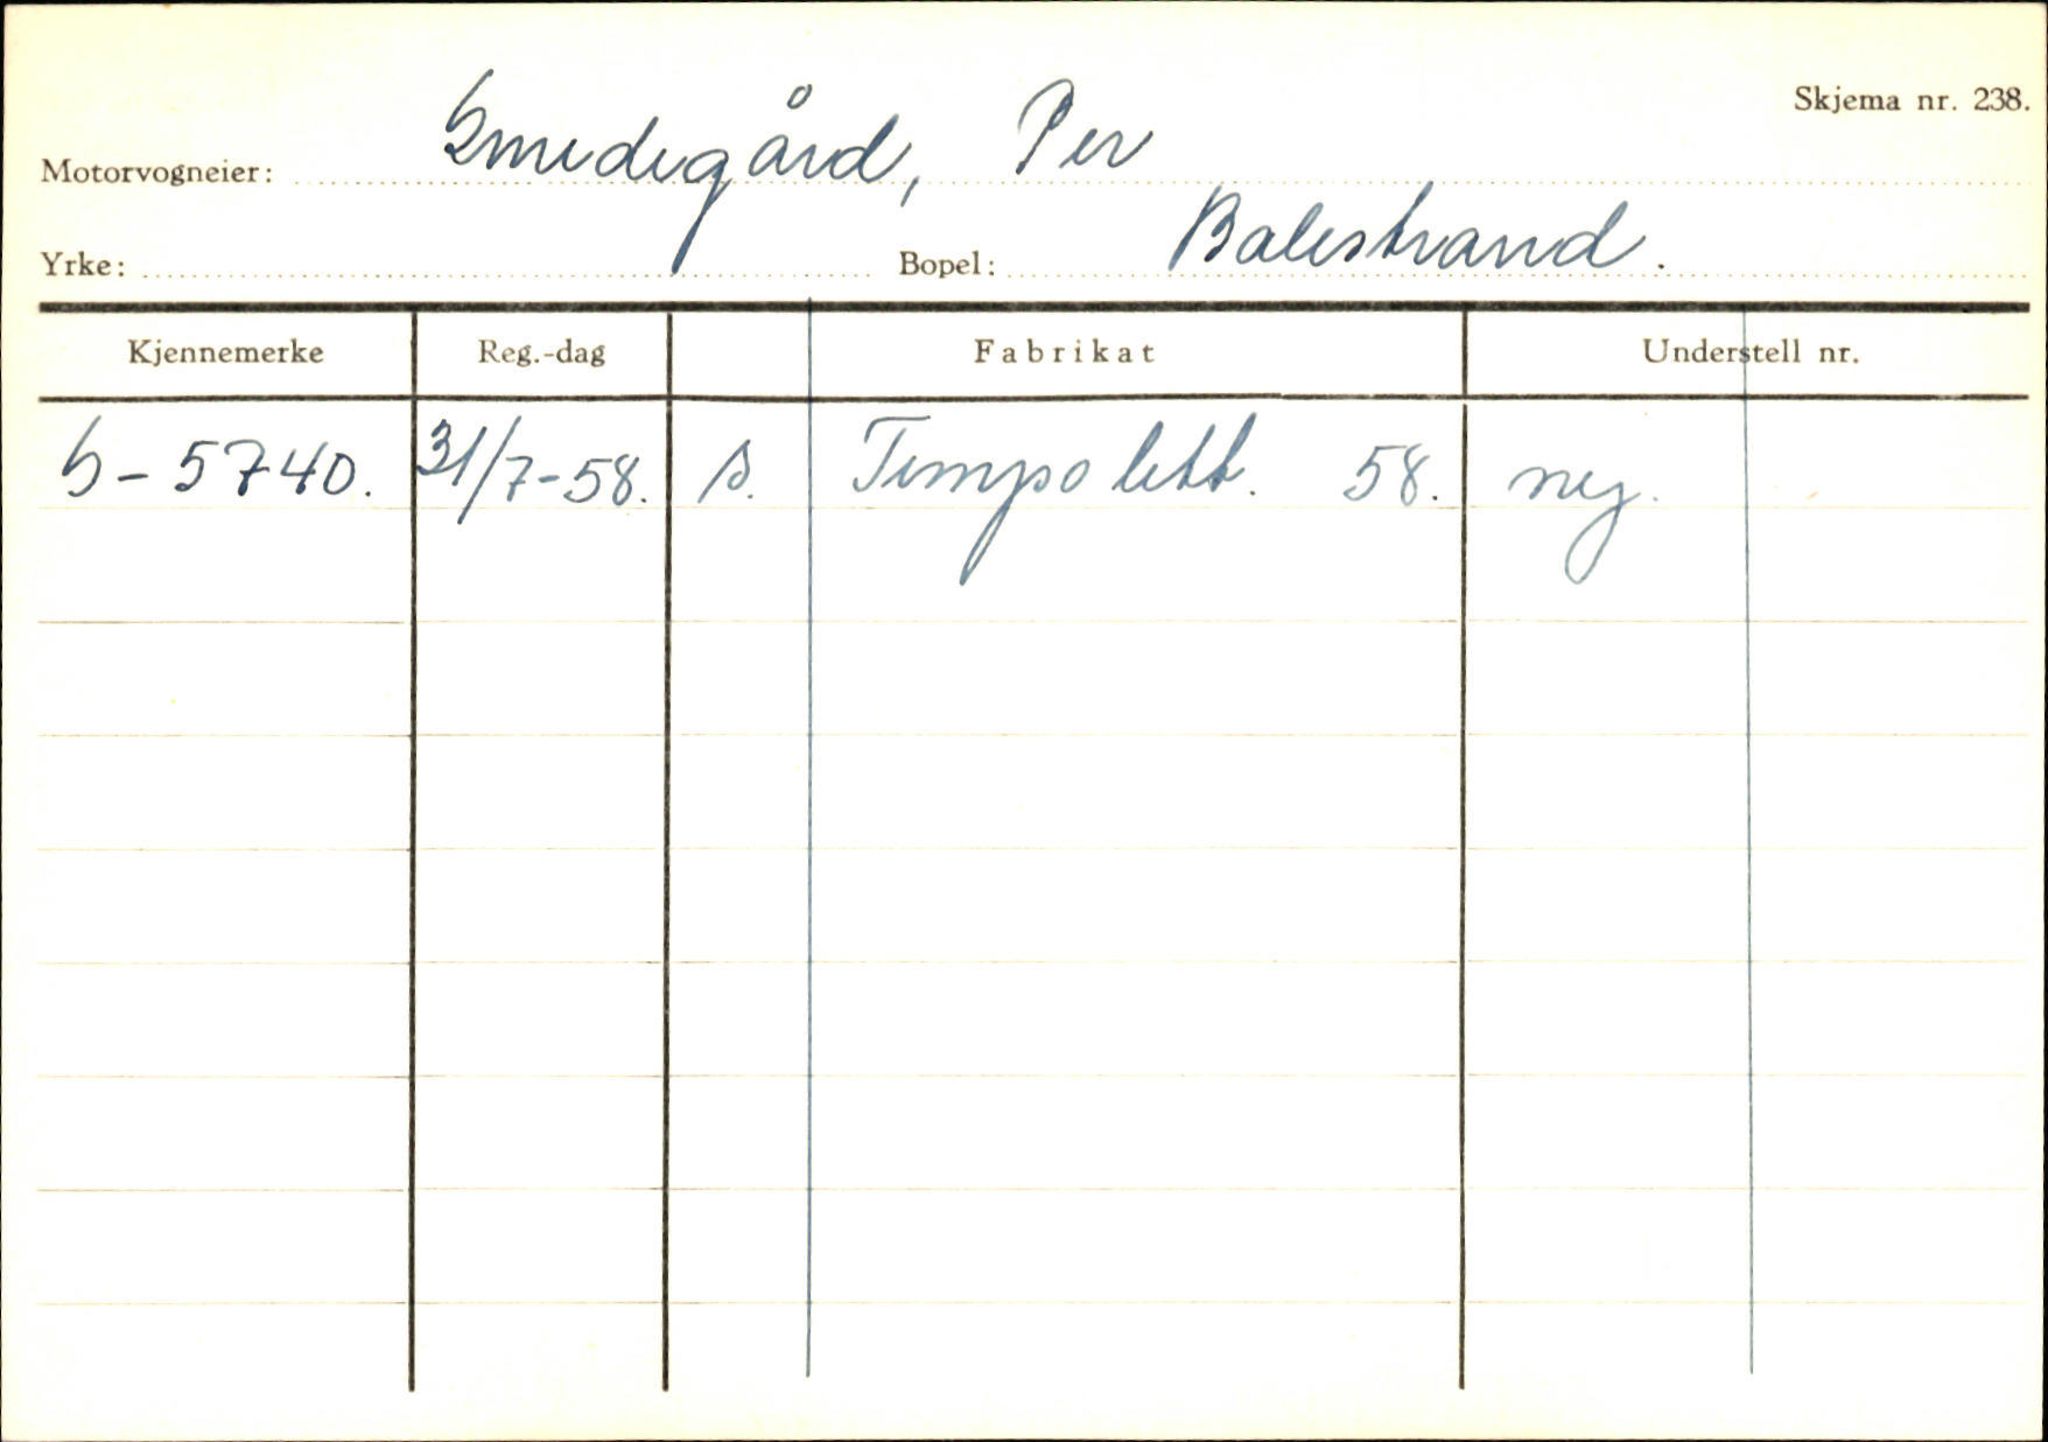 Skjema nr. 238.
Motorvogneier: Smedegård, Per
Yrke: Bopel: Balestrand.
Kjennemerke Reg.-dag Fabrikat Understell nr.
S-5740. 31/7-58. s. Tempo lett. 58. ny.